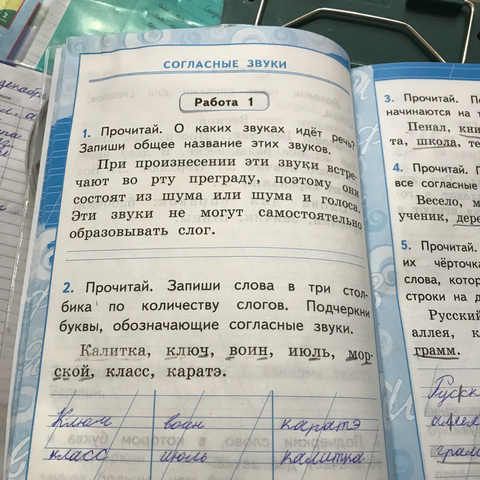 СОГЛАСНЫЕ ЗВУКИ
Работа 1
1. Прочитай. О каких звуках идёт речь?
Запиши общее название этих звуков.
При произнесении эти звуки встре-
чают во рту преграду, поэтому они
состоят из шума или шума и голоса.
Эти звуки не могут самостоятельно
образовывать слог.
2. Прочитай. Запиши слова в три стол-
бика по количеству слогов. Подчеркни
буквы, обозначающие согласные звуки.
Калитка, ключ, воин, июль, мор-
ской, класс, каратэ.
Ключ воин каратэ
класс июль калитка
3. Прочитай.
начинаются на
Пенал,
та, школа,
4. Прочитай.
все согласные
Весело,
ученик,
5. Прочитай.
их чёрточка
слова,
строки на
Русский
аллея,
грамм.